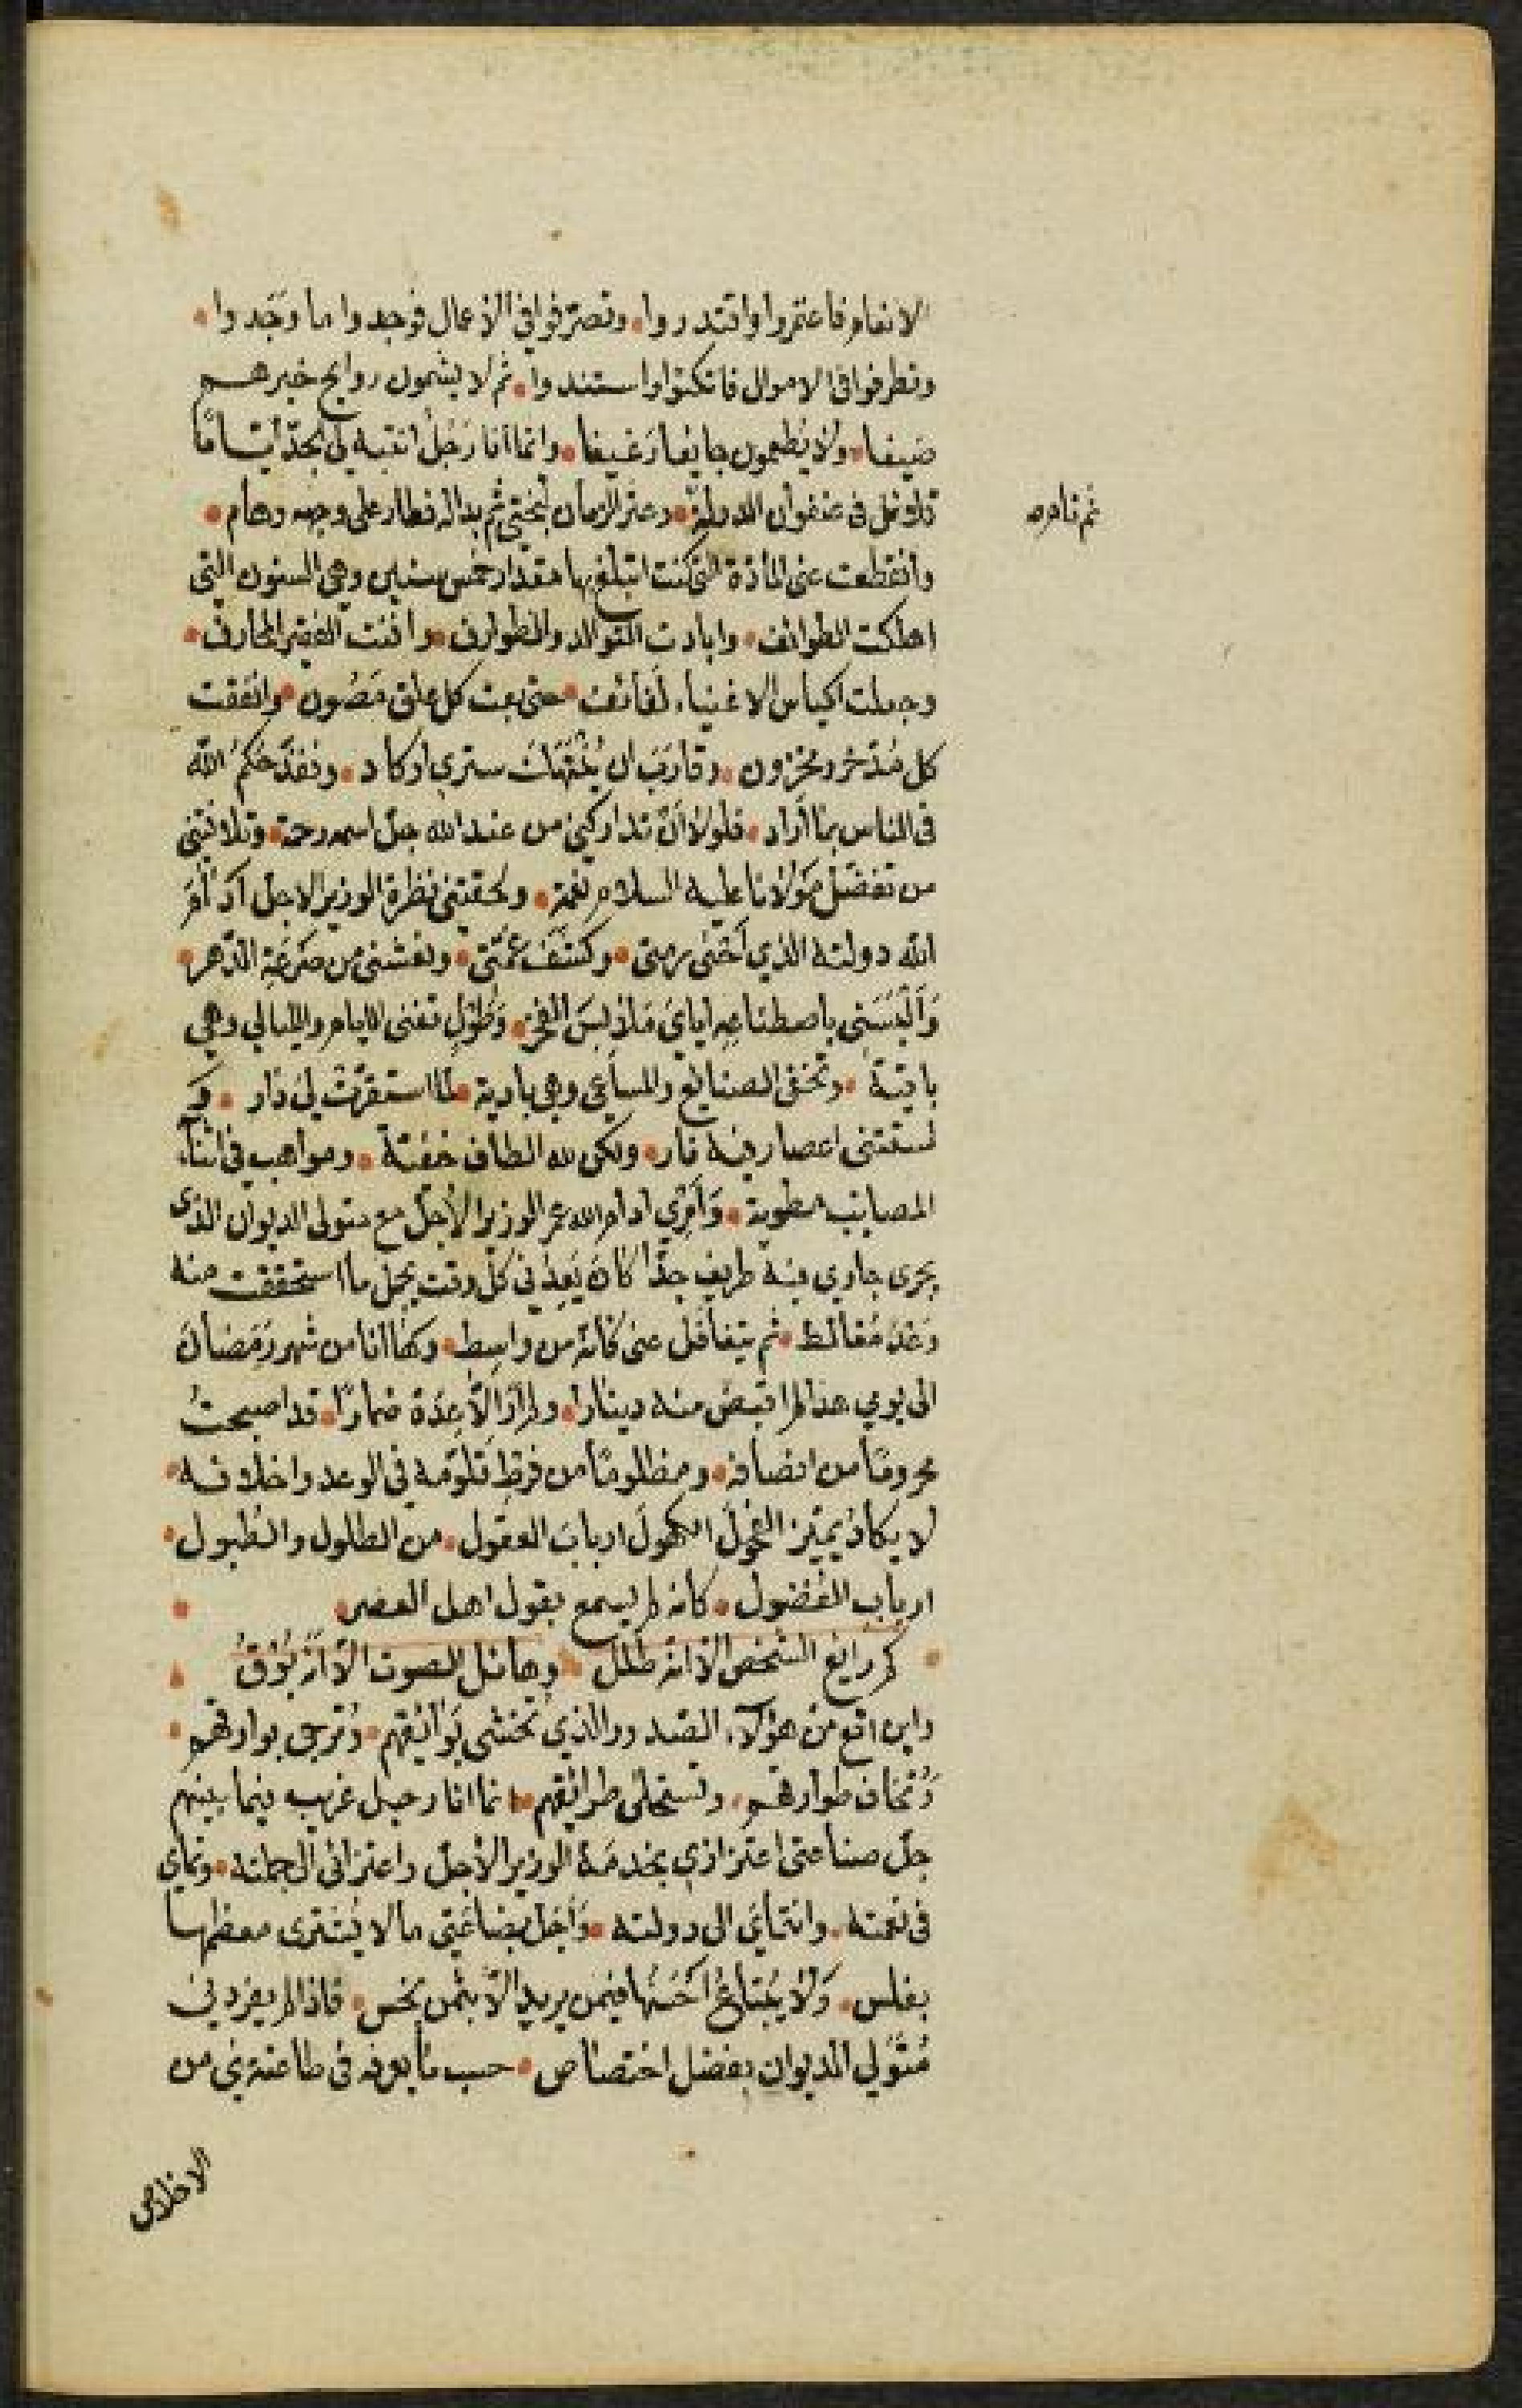 الانعام فاعتمروا واقتدروا ۰ وتصرفوا في الاعمال فوجدوا ما وجدوا ۰
وتطرفوا في الاموال فاتكئوا واستندوا ۰ ثم لا يشمون روايح خبزهم
ضيفا ۰ ولا يطعمون جايعا رغيفا ۰ وانما انا رجل انتبه لي الجد أيّامًا
قلائل في عنفوان الدولة ۰ وعثر الزمان ببختي ثم بدا له فطار على وجهه وهام ۰
ثم نام صه
وانقطعت عني المادة التي كنت اتبلغ بها مقدار خمس سنين وهي السنون التي
اهلكت الطوائف ۰ وابادت التوالد والطوارف ۰ وافنت الفقير المحارف ۰
وجعلت اكياس الاغنياء لفائف ۰ حتى بعت كل علق مصون ۰ وانفقت
كل مدّخر ومخزون ۰ وقارب ان ينتهك ستري او كاد ۰ ونفذ حكم الله
في الناس بما أراد ۰ فلولا ان تداركني من عند الله جل اسمه رحمة ۰ وتلافتني
من تفضل مولانا عليه السلام نعمة ۰ ولحقتني نظرة الوزير الاجل أدام
الله دولته الذي أحيى رمتي ۰ وكشف غمّتي ۰ ونعشني من صرعة الدهر ۰
وألبسني باصطناعه اياي ملابس الفخر ۰ وطول تفنى الايام والليالي وهي
باقية ۰ وتخفى الصنايع والمساعي وهي بادية ۰ لما استقرّت لي دار ۰ و
لسفتني اعصار فيه نار ۰ ولكن لله الطاف خفيّة ۰ ومواهب في اثناء
المصائب مطوية ۰ وأمري ادام الله عز الوزير الأجل مع متولي الديوان الذي
يجري جاري فيه طريف جدّا كان يعدني كل وقت بحمل ما استحققت منه
وعد مغالط ۰ ثم يتغافل عني كأنه من واسط ۰ وها انا من شهر رمضان
الى يومي هذا لم اقبض منه دينارا ۰ ولم أر الّا عدة ضمارًا ۰ قد اصبحتُ
محرومًا من انصافه ۰ ومظلومًا من فرط تلوّمه في الوعد واخلافه ۰
لا يكاد يميّز الفحول الكهول ارباب العقول ۰ من الطلول والطبول ۰
ارباب الفضول ۰ كأنه لم يسمع بقول اهل العصر ۰
كم رايع الشخص الا انه طلل ۰ وهائل الصوت الّا أنه بوقُ
واين اقع من هؤلاء الصدور الذي تخشى بوائقهم ۰ وترجى بوارقهم ۰
وتخاف طوارقهم ۰ وتستحلى طرائقهم ۰ انما انا رجل غريب فيما بينهم
جلّ صناعتي اعتزازي بخدمة الوزير الأجل واعتزائي الى جملته ۰ ونماي
في نعمته ۰ وانتمائي الى دولته ۰ وأجل بضاعتي ما لا يشترى معظمها
بفلس ۰ ولا يبتاع أخسّها فيمن يريد الّا بثمن بخس ۰ فاذا لم يفردني
متولي الديوان بفضل اختصاص ۰ حسب ما يعرفه في طاعته ني من
الاخلاص